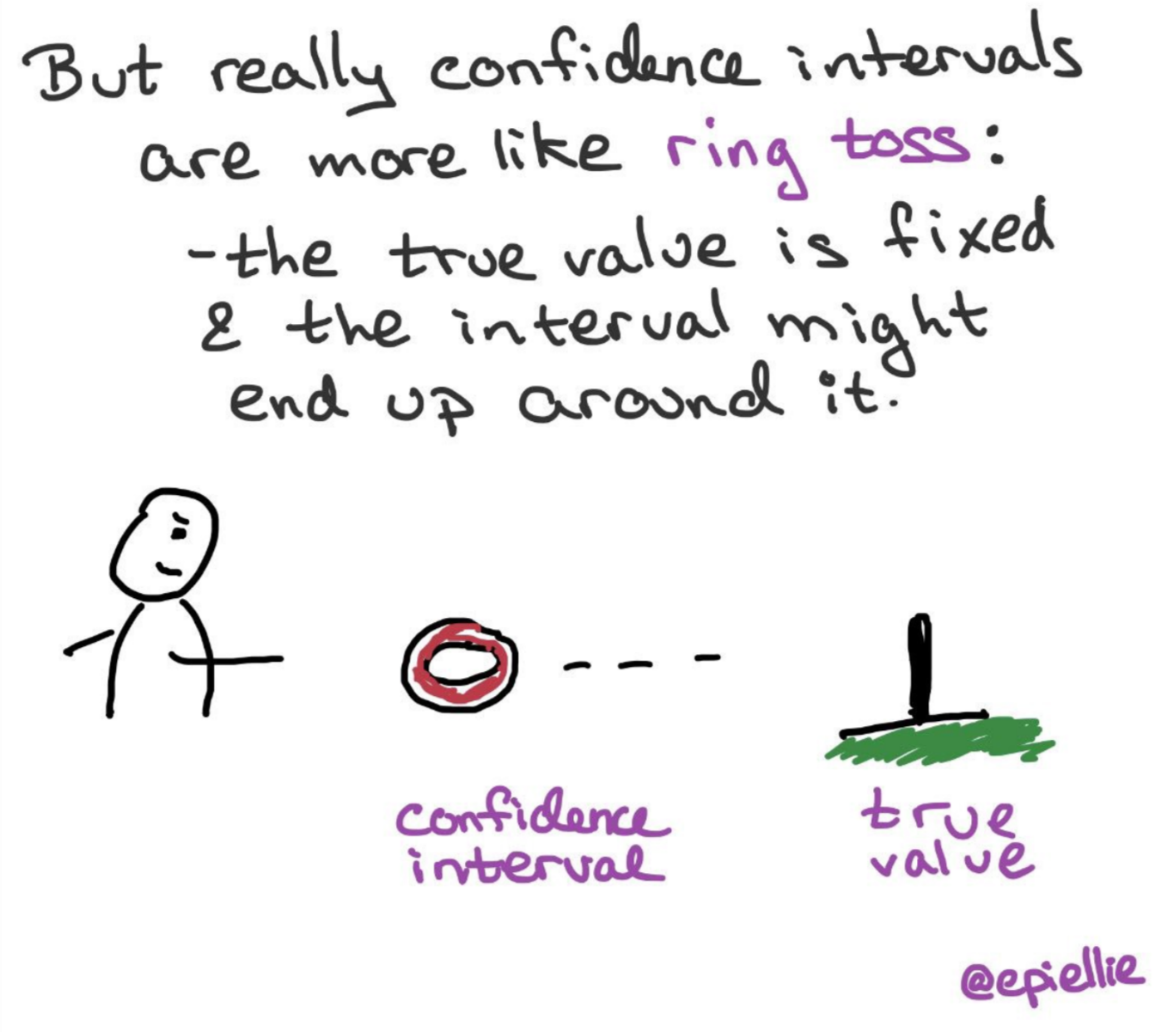 But really confidence intervals
are more like ring toss:
-the true value is fixed
& the interval might
end up around it.
confidence
interval
true
value
@epiellie